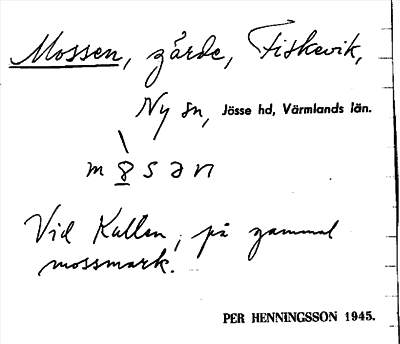 Mossen, gärde, Fiskevik,
Ny sn, Jösse hd, Värmlands län.
m8̲sən
Vid Kallen, på gammal
mossmark.
PER HENNINGSSON 1945.